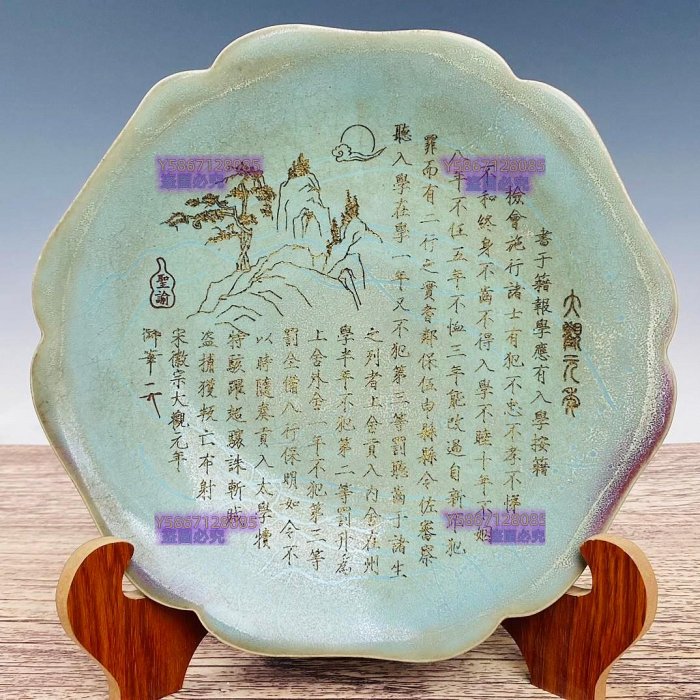 大觀元年
書于籍報學應有入學按籍
檢會施行諸士有犯不忠不孝不悌
不和終身不齒不得入學不睦十年不姻
八年不任五年不恤三年能改過自新不犯
罪而有二行之實耆鄰保伍申縣縣令佐審察
聽入學在學一年又不犯第三等罰聽齒于諸生
之列者上舍貢入內舍在州
學半年不犯第二等罰升為
上舍外舍一年不犯第三等
罰仝備八行保明如令不
以時隨奏貢入太學犢
駭躍超驤誅斬賊
盜捕獲叛亡布射
宋徽宗大觀元年
御筆
聖諭
Y5867128085
盜圖必究
Y5867128085
盜圖必究
Y5867128085
盜圖必究
Y5867128085
盜圖必究